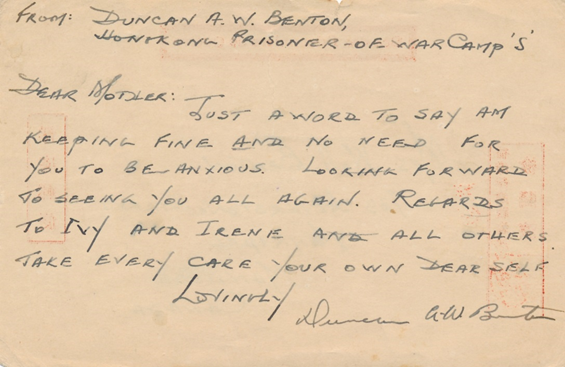 FROM: DUNCAN A. W. BENTON,
HONKONG PRISONER-OF WAR CAMP 'S'
DEAR MOTHER:
JUST A WORD TO SAY AM
KEEPING FINE AND NO NEED FOR
YOU TO BE ANXIOUS. LOOKING FORWARD
TO SEEING YOU ALL AGAIN. REGARDS
TO IVY AND IRENE AND ALL OTHERS
TAKE EVERY CARE YOUR OWN DEAR SELF
LOVINGLY
Duncan A.W. Benton